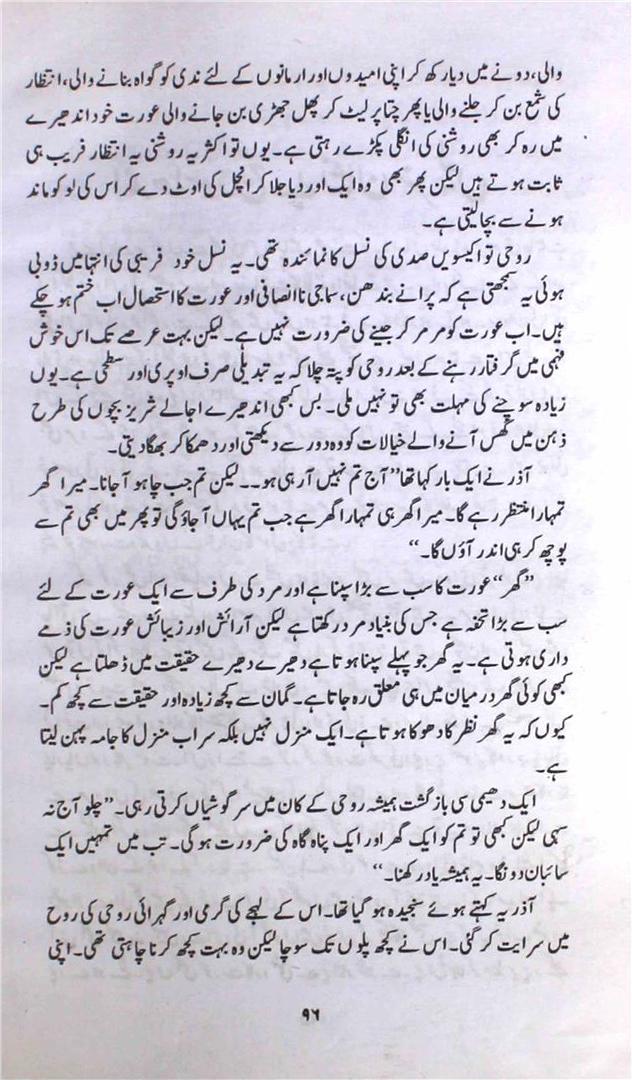 والی، دونے میں دیا رکھ کر اپنی امیدوں اور ارمانوں کے لئے ندی کو گواہ بنانے والی، انتظار
کی شمع بن کر جلنے والی یا پھر چتا پر لیٹ کر پھل جھڑی بن جانے والی عورت خود اندھیرے
میں رہ کر بھی روشنی کی انگلی پکڑے رہتی ہے۔ یوں تو اکثر یہ روشنی یہ انتظار فریب ہی
ثابت ہوتے ہیں لیکن پھر بھی وہ ایک اور دیا جلا کر انچل کی اوٹ دے کر اس کی لو کو ماند
ہونے سے بچالیتی ہے۔
روحی تو اکیسویں صدی کی نسل کا نمائندہ تھی۔ یہ نسل خود فریبی کی انتہا میں ڈوبی
ہوئی یہ سمجھتی ہے کہ پرانے بندھن، سماجی نا انصافی اور عورت کا استحصال اب ختم ہو چکے
ہیں۔ اب عورت کو مر مر کر جینے کی ضرورت نہیں ہے۔ لیکن بہت عرصے تک اس خوش
فہمی میں گرفتار رہنے کے بعد روحی کو پتہ چلا کہ یہ تبدیلی صرف اوپری اور سطحی ہے۔ یوں
زیادہ سوچنے کی مہلت بھی تو نہیں ملی۔ بس کبھی اندھیرے اجالے شریر بچوں کی طرح
ذہن میں گھس آنے والے خیالات کو وہ دور سے دیکھتی اور دھمکا کر بھگا دیتی۔
آذر نے ایک بار کہا تھا ”آج تم نہیں آرہی ہو۔۔ لیکن تم جب چاہو آجانا۔ میرا گھر
تمہارا منتظر رہے گا۔ میرا گھر ہی تمہارا گھر ہے جب تم یہاں آجاؤگی تو پھر میں بھی تم سے
پوچھ کر ہی اندر آؤں گا۔“
”گھر“ عورت کا سب سے بڑا سپنا ہے اور مرد کی طرف سے ایک عورت کے لئے
سب سے بڑا تحفہ ہے جس کی بنیاد مرد رکھتا ہے لیکن آرائش اور زیبائش عورت کی ذمے
داری ہوتی ہے۔ یہ گھر جو پہلے سپنا ہوتا ہے دھیرے دھیرے حقیقت میں ڈھلتا ہے لیکن
کبھی کوئی گھر درمیان میں ہی معلق رہ جاتا ہے۔ گمان سے کچھ زیادہ اور حقیقت سے کچھ کم۔
کیوں کہ یہ گھر نظر کا دھوکا ہوتا ہے۔ ایک منزل نہیں بلکہ سراب منزل کا جامہ پہن لیتا
ہے۔
ایک دھیمی سی بازگشت ہمیشہ روحی کے کان میں سرگوشیاں کرتی رہی۔ ”چلو آج نہ
سہی لیکن کبھی تو تم کو ایک گھر اور ایک پناہ گاہ کی ضرورت ہوگی۔ تب میں تمہیں ایک
سائبان دونگا۔ یہ ہمیشہ یاد رکھنا۔“
آذر یہ کہتے ہوئے سنجیدہ ہو گیا تھا۔ اس کے لہجے کی گرمی اور گہرائی روحی کی روح
میں سرایت کر گئی۔ اس نے کچھ پلوں تک سوچا لیکن وہ بہت کچھ کرنا چاہتی تھی۔ اپنی
۹۶